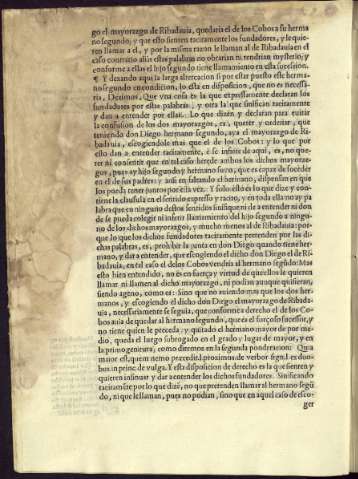 go el mayorazgo de Ribadauia, quedaria el de los Cobos a su herma
no segundo, y que esto sienten tacitamente los fundadores, y le quie-
ren llamar a el, y por la misma razon le llaman al de Ribadauia en el
caso contrario assi estas palabras no obraran ni tendrian mysterio, y
conforme a ellas el hijo segundo tiene llamamiento en esta sucession.
¶ Y dexando aqui la larga altercacion si por estar puesto esse herma-
no segundo en condicion, lo està en disposicion, que no es necessa-
ria, Dezimos, Que vna cosa es la que expressamente declaran los
fundadores por estas palabras, y otra la que insinuan tacitamente
y dan a entender por ellas. Lo que dizen y declaran para euitar
la confusion de los dos mayorazgos, es, querer y ordenar, que
teniendo don Diego hermano segundo, aya el mayorazgo de Ri-
badauia, escogiendole mas que el de los Cobos: y lo que por
esto dan a entender tacitamente, è se infiere de aqui, es, no que-
rer ni consentir que en tal caso herede ambos los dichos mayoraz-
gos, pues ay hijo segundo y hermano suyo, que es capaz de suceder
en el de sus padres: y assi en faltando el hermano, dispensan en que
los pueda tener juntos por essa vez. Y solo esto es lo que dize y con-
tiene la clausula en el sentido expresso y tacito, y en toda ella no ay pa
labra que en ninguno destos sentidos insinue ni de a entender ni don
de se pueda colegir ni inferir llamamiento del hijo segundo a ningu-
no de los dichos mayorazgos, y mucho menos al de Ribadauia: por-
que lo que los dichos fundadores tacitamente pretenden por las di-
chas palabras, es, prohibir la junta en don Diego quando tiene her-
mano, y dar a entender, que escogiendo el dicho don Diego el de Ri-
badauia, en tal caso el de los Cobos vendria al hermano segundo: Mas
esto bien entendido, no es en fuerça y virtud de que ellos le quieren
llamar ni llamen al dicho mayorazgo, ni podian aunque quisieran,
siendo ageno, como es: Sino que no auiendo mas que los dos her-
manos, y escogiendo el dicho don Diego el mayorazgo de Ribada-
uia, necessariamente se seguia, que conforme a derecho el de los Co-
bos auia de quedar al hermano segundo, que es el forçoso sucessor, y
no tiene quien le preceda, y quitado el hermano mayor de por me-
dio, queda el luego subrogado en el grado y lugar de mayor, y en
la primogenitura, como diremos en la segunda ponderacion: Quia
maior est, quem nemo præcedit. l. proximus de verbor. sign. l. ex duo-
bus in princ. de vulga. Y esta disposicion de derecho es la que sienten y
quieren insinuar y dar a entender los dichos fundadores. Sinificando
tacitamente por lo que dizē, no que pretenden llamar al hermano segū
do, ni que le llaman, pues no podian, sino que en aquel caso de esco-
ger